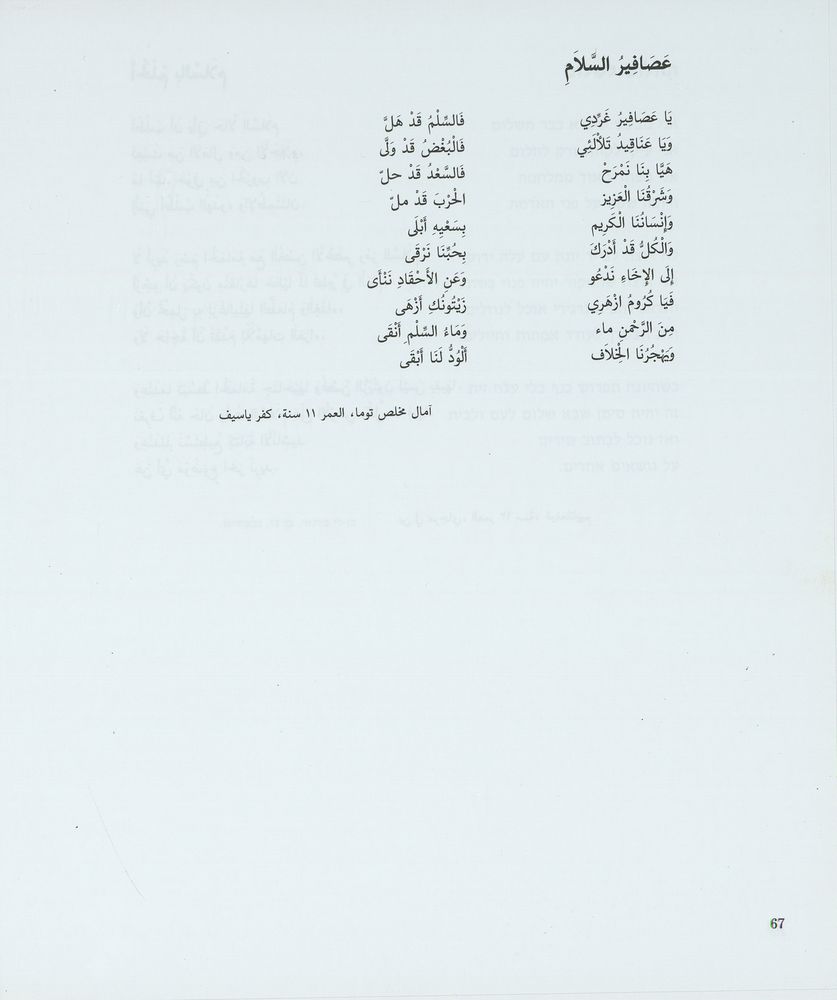 عَصَافِيرُ السَّلاَمِ
يَا عَصَافِيرُ غَرِّدِي فَالسِّلْمُ قَدْ هَلَّ
وَيَا عَنَاقِيدُ تَلأْلَئِي فَالْبُغْضُ قَدْ وَلَّى
هَيَّا بِنَا نَمْرَحْ فَالسَّعْدُ قَدْ حلّ
وَشَرْقُنَا الْعَزِيز الْحَرْبَ قَدْ ملّ
وَإِنْسَانُنَا الْكَرِيم بِسَعْيِهِ أَبْلَى
وَالْكلُّ قَدْ أَدْرَكَ بِحُبِّنَا نَرْقَى
إِلَى الإِخَاءِ نَدْعُو وَعَنِ الأَحْقَادِ نَنْأَى
فَيَا كُرُومُ ازْهَرِي زَيْتُونُكِ أَزْهَى
مِنَ الرَّحْمٰنِ ماء وَمَاءُ السِّلْمِ أَنْقَى
وَيَهْجُرُنَا الْخِلاَف أَلْوُدُّ لَنَا أَبْقَى
آمال مخلص توما، العمر ١١ سنة، كفر ياسيف
67